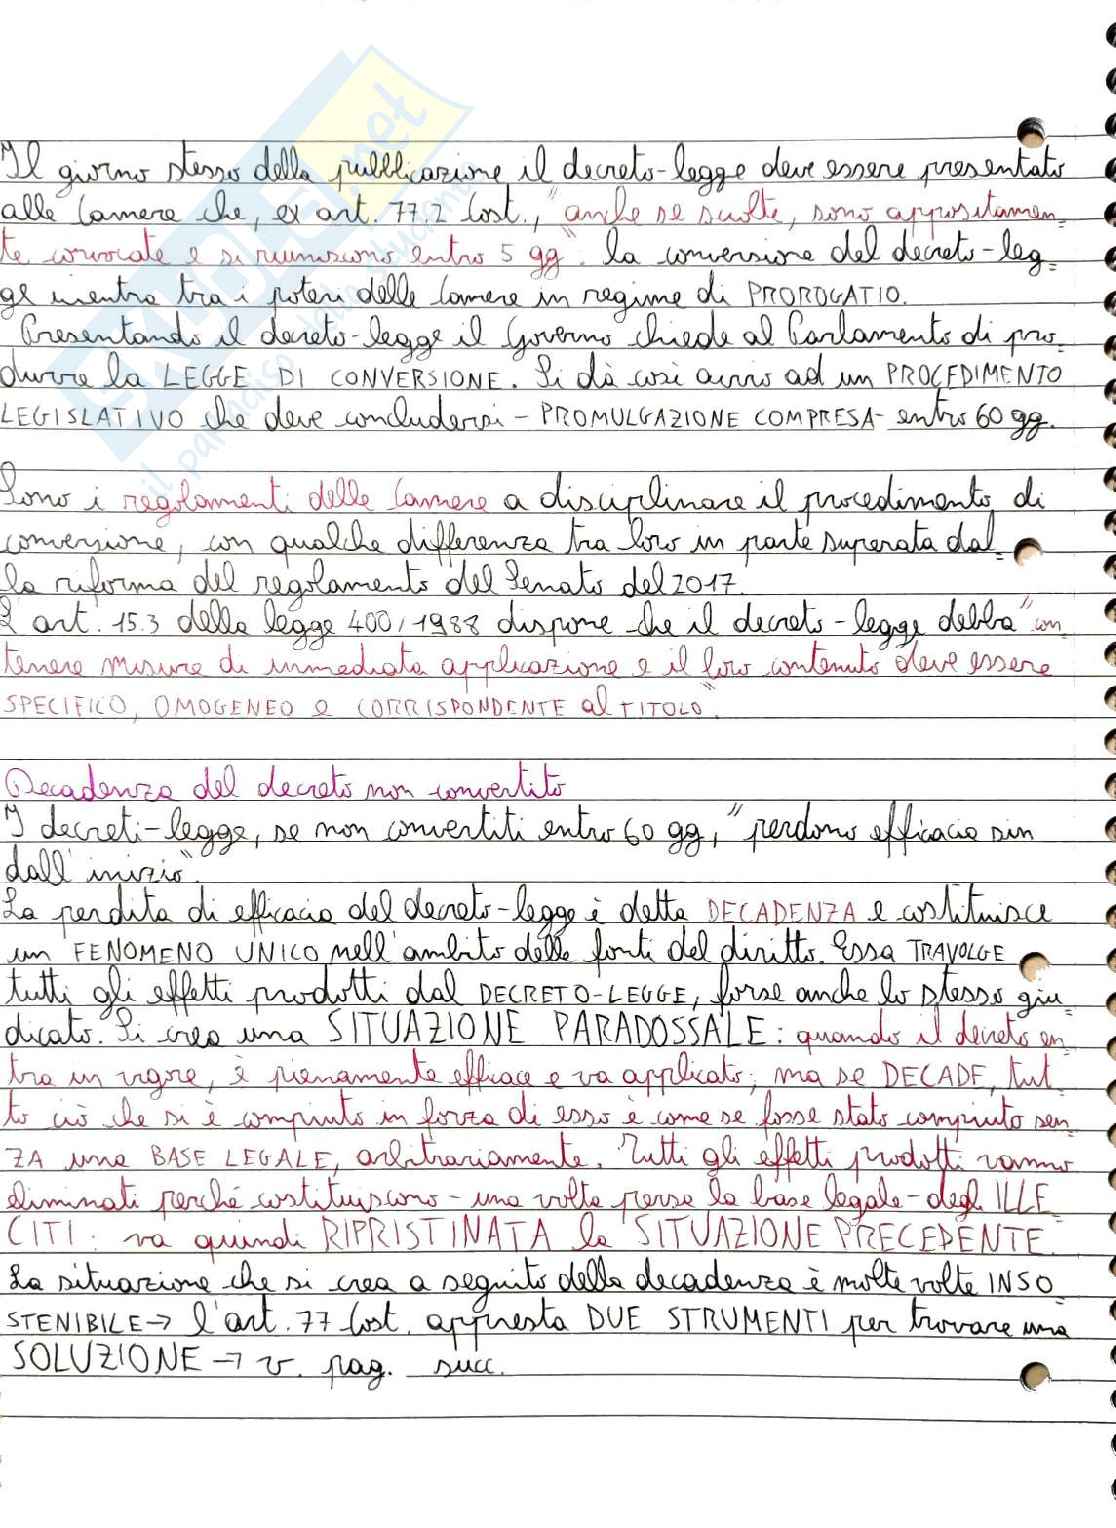 Il giorno stesso della pubblicazione il decreto-legge deve essere presentato
alle Camere che, ex art. 77.2 Cost., "anche se sciolte, sono appositamen=
te convocate e si riuniscono entro 5 gg". La conversione del decreto-leg=
ge rientra tra i poteri delle Camere in regime di PROROGATIO.
Presentando il decreto-legge il Governo chiede al Parlamento di pro=
durre la LEGGE DI CONVERSIONE. Si dà così avvio ad un PROCEDIMENTO
LEGISLATIVO che deve concludersi - PROMULGAZIONE COMPRESA - entro 60 gg.
Sono i regolamenti delle Camere a disciplinare il procedimento di
conversione, con qualche differenza tra loro in parte superata dal=
la riforma del regolamento del Senato del 2017.
L'art. 15.3 della legge 400/1988 dispone che il decreto-legge debba "con=
tenere misure di immediata applicazione e il loro contenuto deve essere
SPECIFICO, OMOGENEO e CORRISPONDENTE al TITOLO".
Decadenza del decreto non convertito
I decreti-legge, se non convertiti entro 60 gg, "perdono efficacia sin
dall'inizio".
La perdita di efficacia del decreto-legge è detta DECADENZA e costituisce
un FENOMENO UNICO nell'ambito delle fonti del diritto. Essa TRAVOLGE
tutti gli effetti prodotti dal DECRETO-LEGGE, forse anche lo stesso giu=
dicato. Si crea una SITUAZIONE PARADOSSALE: quando il decreto en=
tra in vigore, è pienamente efficace e va applicato; ma se DECADE, tut=
to ciò che si è compiuto in forza di esso è come se fosse stato compiuto sen=
ZA una BASE LEGALE, arbitrariamente. Tutti gli effetti prodotti vanno
eliminati perché costituiscono - una volta persa la base legale - degli ILLE=
CITI: va quindi RIPRISTINATA la SITUAZIONE PRECEDENTE.
La situazione che si crea a seguito della decadenza è molte volte INSO=
STENIBILE → l'art. 77 Cost. appresta DUE STRUMENTI per trovare una
SOLUZIONE → v. pag. succ.